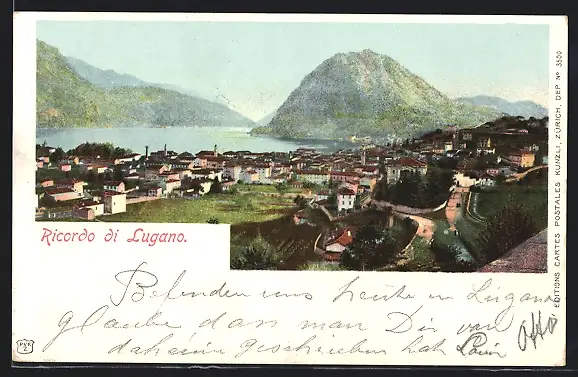 Ricordo di Lugano.
EDITIONS CARTES POSTALES KÜNZLI, ZÜRICH, DEP. Nº 3500
PKK
Z
Befinden uns heute in Lugano
Glaube dass man Dir von
daheim geschrieben hat
Otto